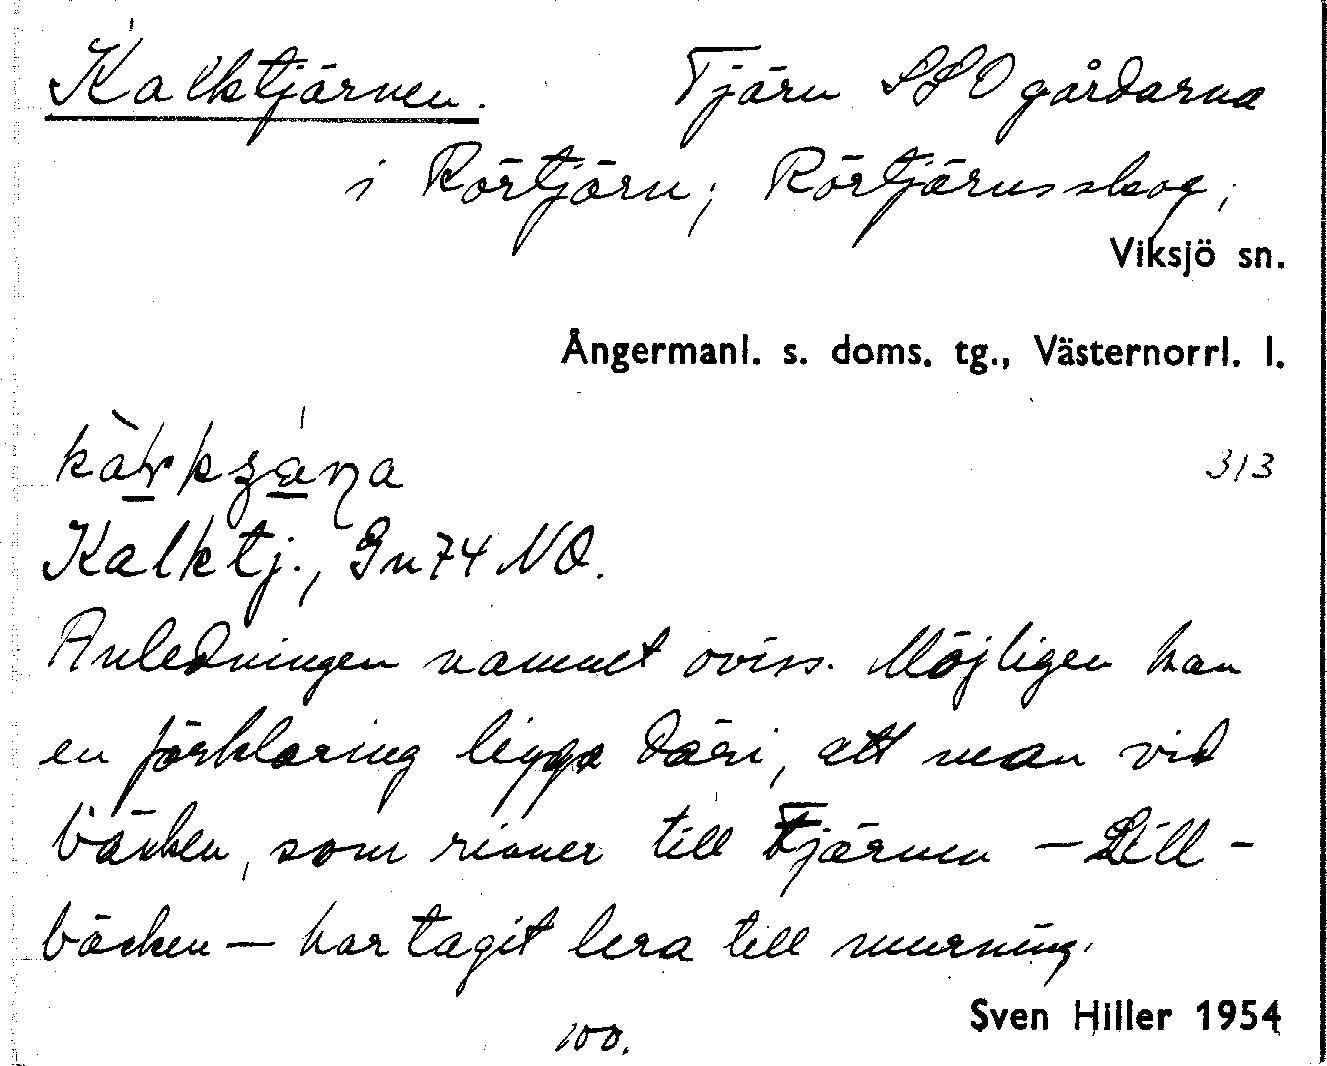 Kalktjärnen. Tjärn SSO gårdarna
i Rörtjärn; Rörtjärns skog,
Viksjö sn.
Ångermanl. s. doms. tg., Västernorrl. l.
313
Kalktj., Gn 74 NO.
Anledningen namnet oviss. Möjligen kan
en förklaring ligga däri, att man vid
bäcken, som rinner till Tjärnen – Lill-
bäcken – har tagit lera till murning.
Sven Hiller 1954
100.